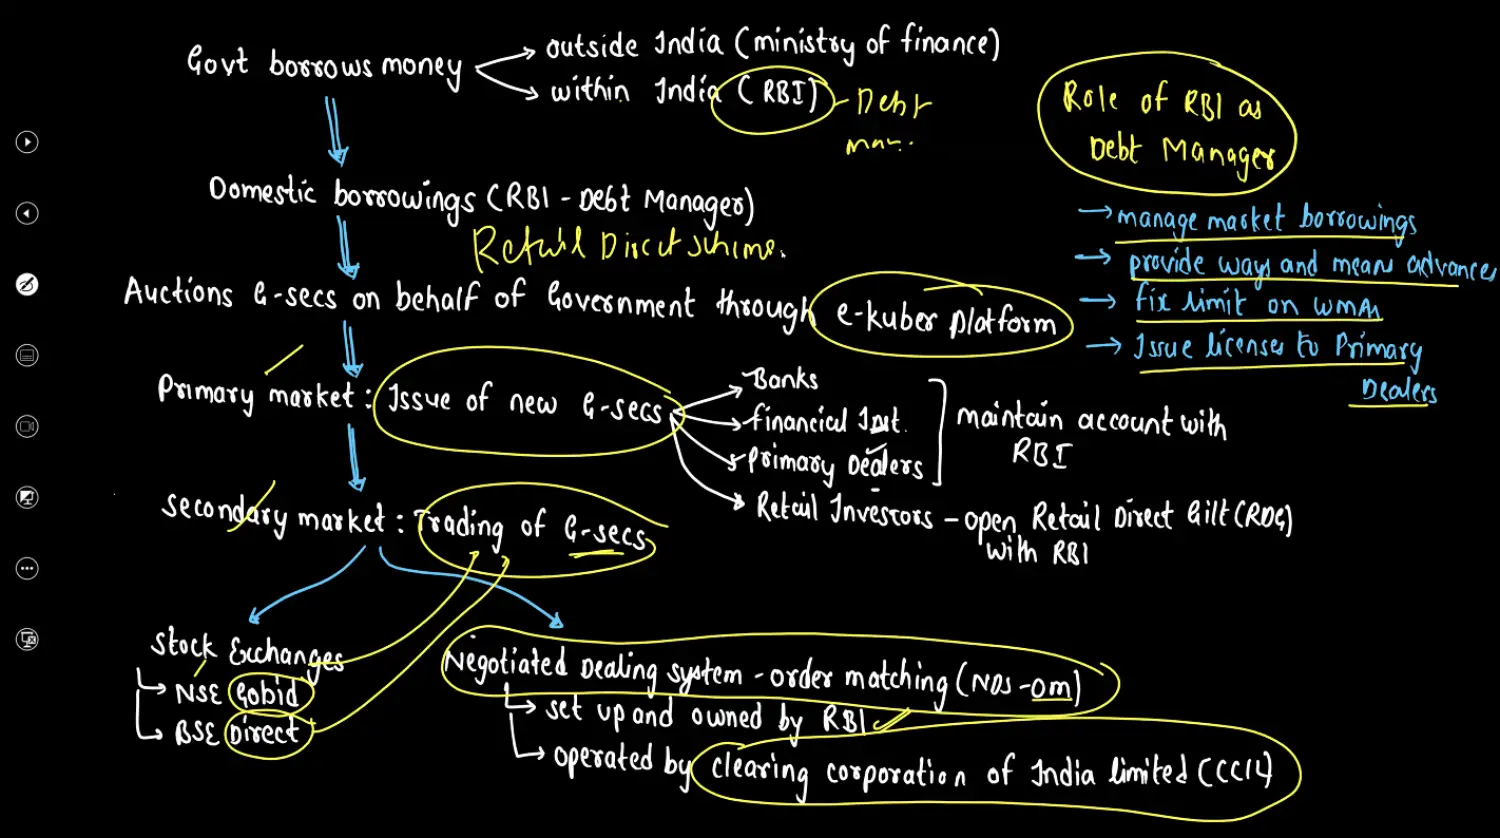 Govt borrows money
outside India (ministry of finance)
within India (RBI) - Debt
man..
Role of RBI as
Debt Manager
Domestic borrowings (RBI - Debt Manager)
Retail Direct scheme.
→ manage market borrowings
→ provide ways and means advances
→ fix limit on WMAs
→ Issue licenses to Primary
Dealers
Auctions G-secs on behalf of Government through e-kuber platform
Primary market : Issue of new G-secs
Banks
financial Inst.
Primary Dealers
Retail Investors - open Retail Direct Gilt (RDG)
with RBI
maintain account with
RBI
Secondary market : Trading of G-secs
Stock Exchanges
NSE Gobid
BSE Direct
Negotiated Dealing system - order matching (NDS - om)
set up and owned by RBI
operated by clearing corporation of India limited (CCIL)